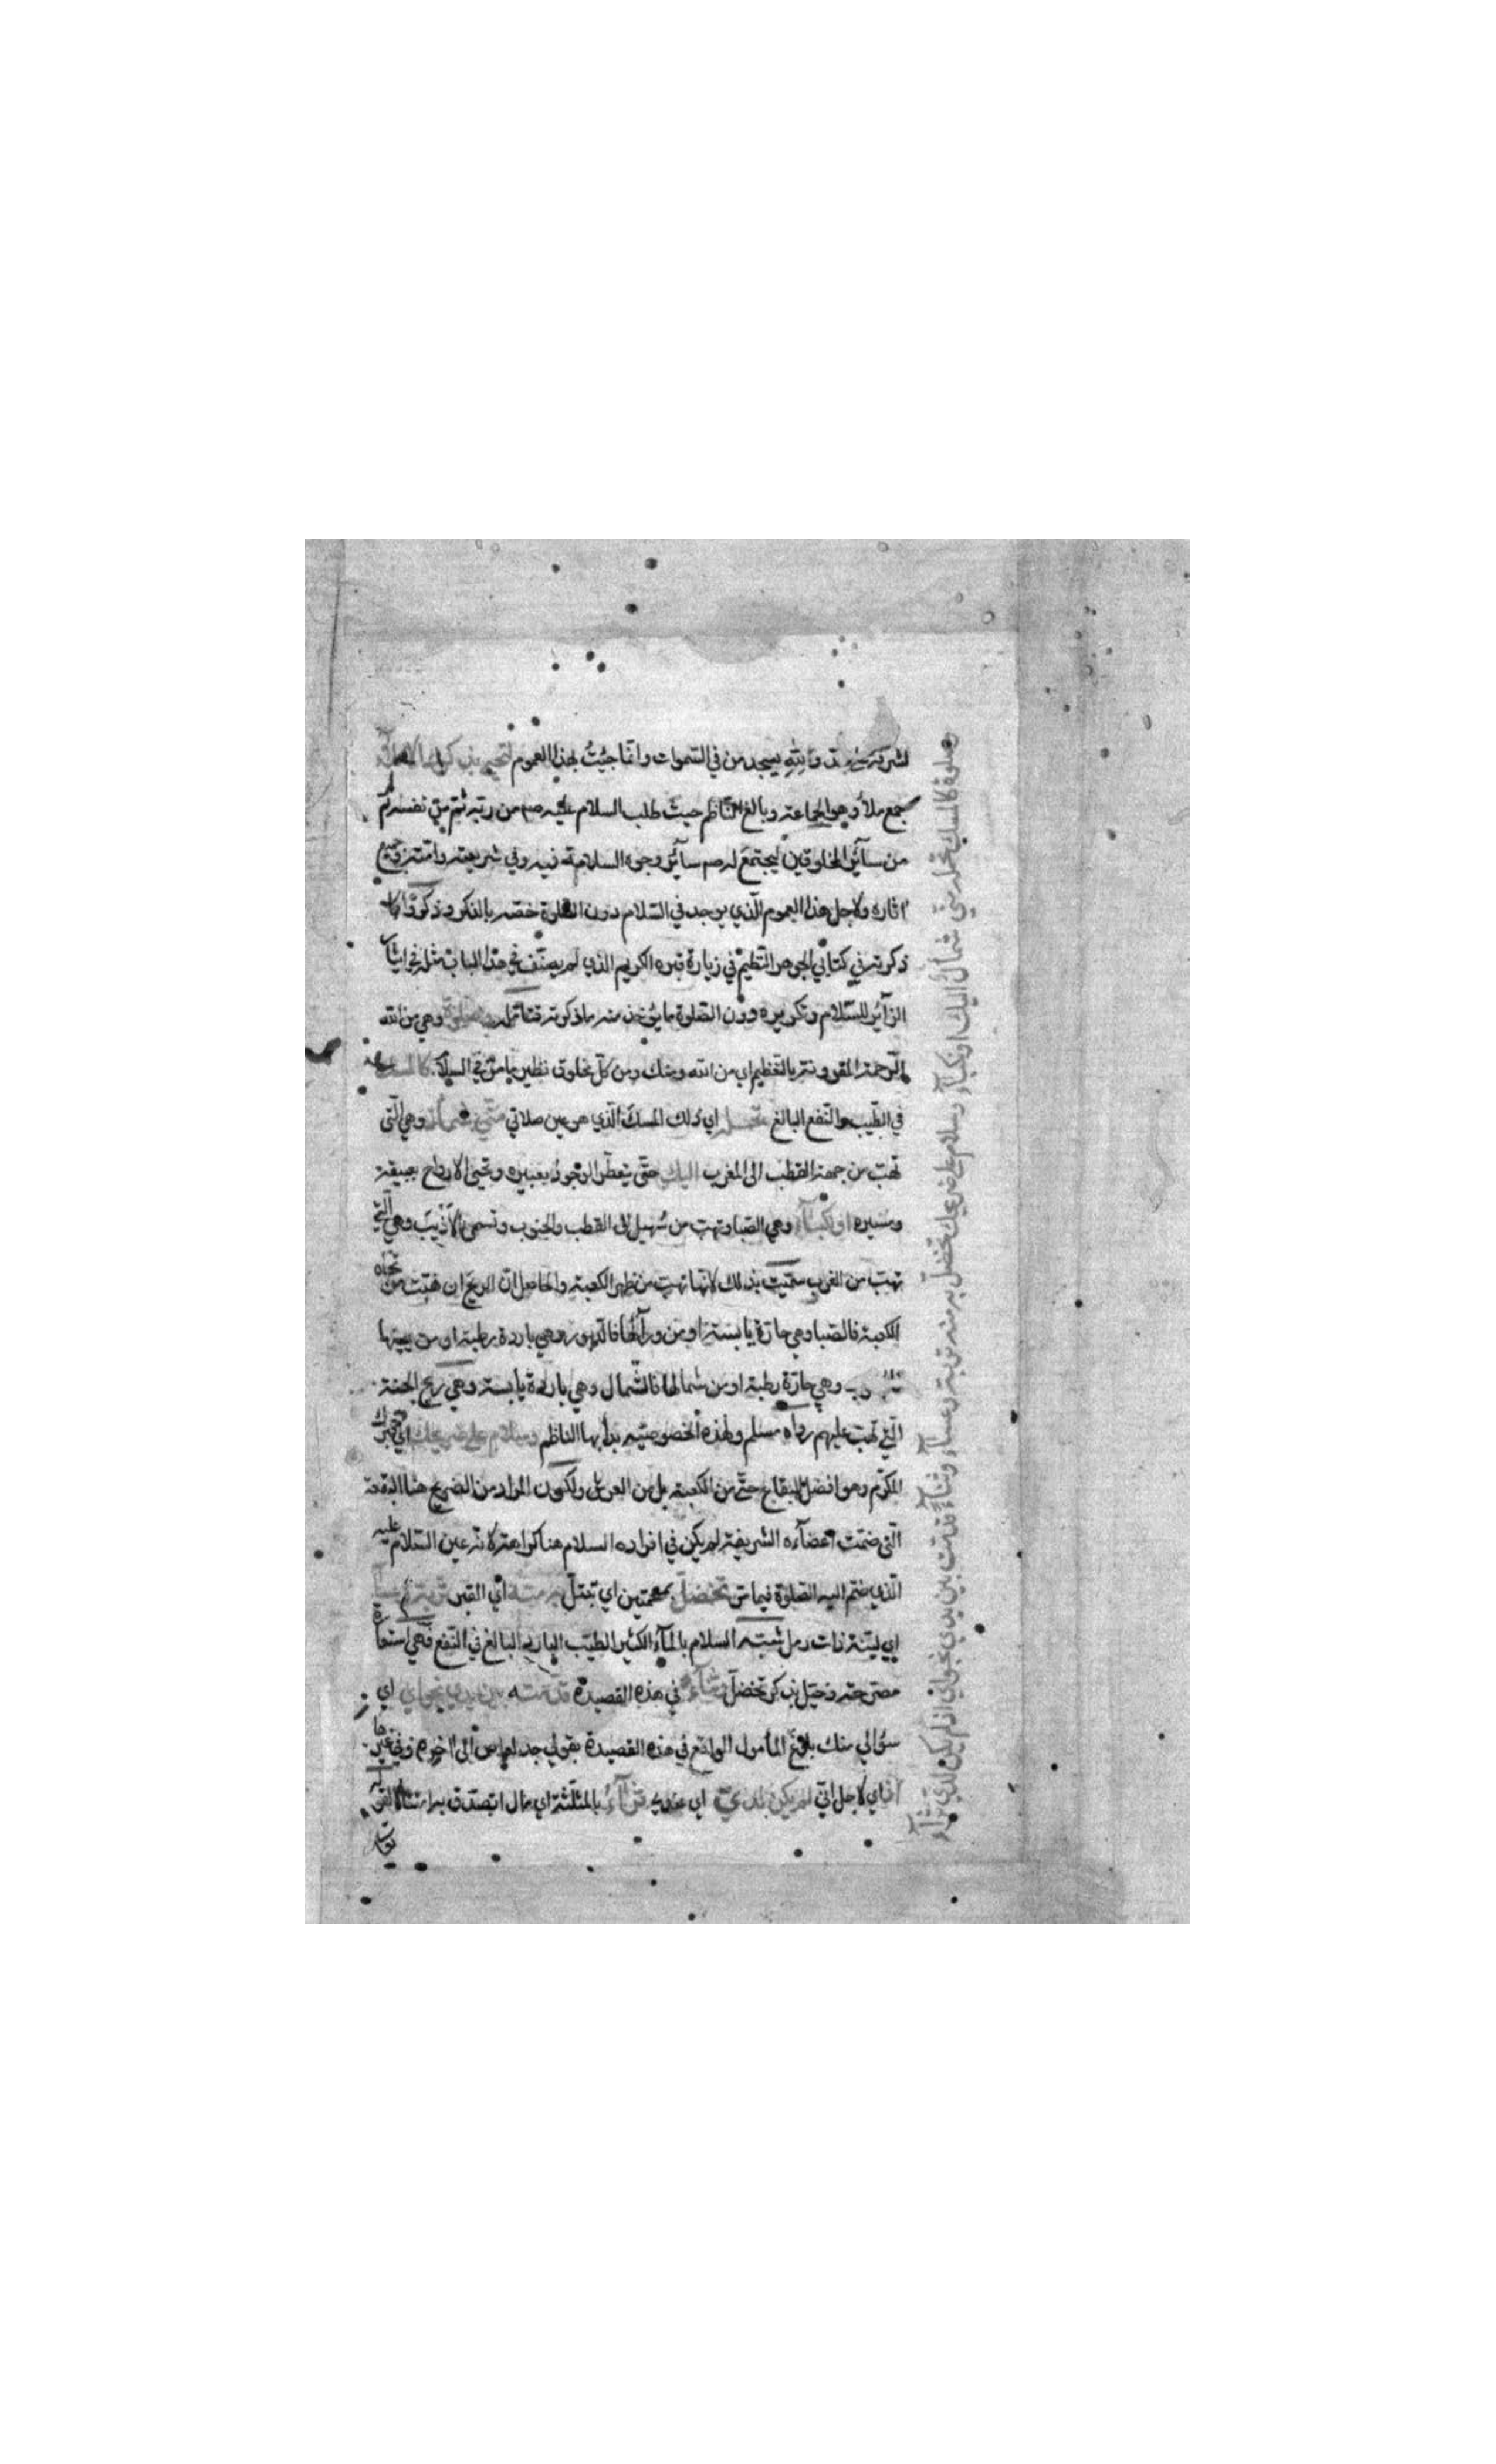 لشرفه ولله يسجد من في السموات وانما جئت بهذا العموم لتحيى بذكرك الاملآء
جمع ملأ وهو الجماعة وبالغ الناظم حيث طلب السلام عليه صم من ربه ثم من نفسه ثم
من سآئر المخلوقين ليجتمع له صم سآئر وجوه السلامة فيه وفي شريعته وامته وجميع
اثاره ولاجل هذا العموم الذي يوجد في السلام دون الصلوة خصه بالذكر وذكر
ذكرته في كتابي الجوهر المنظم في زيارة قبره الكريم الذي لم يصنف في هذا الباب مثله في ايثار
الزآئر للسلام وتكريره دون الصلوة ما يؤخذ منه ما ذكرته فتامله وصلوة وهي من الله
الرحمة المقرونة بالتعظيم اي من الله ومنك ومن كل مخلوق نظير ما مر في السلام كالمسك
في الطيب والنفع البالغ تحمله اي ذلك المسك الذي هو عين صلاتي مني شمال وهي التي
تهب من جهة القطب الى المغرب اليك حتى يتعطر الوجود بعبيره وتحيى الارواح بعبيقه
ومسيره او نكبآء وهي الصبا وتهب من سهيل الى القطب والجنوب وتسمى الازيب وهي التي
تهب من الغرب سميت بذلك لانها تهب من ظهر الكعبة والحاصل ان الريح ان هبت من تجاه
الكعبة فالصبا وهي حارة يابسة او من ورآئها فالدبور وهي باردة رطبة او من يمينها
وهي حارة رطبة او من شمالها فالشمال وهي باردة يابسة وهي ريح الجنة
التي تهب عليهم رواه مسلم ولهذه الخصوصية بدأ بها الناظم وسلام على ضريحك اي قبرك
المكرم وهو افضل البقاع حتى من الكعبة بل من العرش ولكون المراد من الضريح هنا البقعة
التي ضمت اعضآءه الشريفة لم يكن في افراده السلام هنا كراهة لانه عين السلام عليه
الذي ضم اليه الصلوة فيما مر تخضل بمعجمتين اي تبتل به منه اي القبر تربة وعسآء
اي لينة ذات رمل شبه السلام بالمآء الكثير الطيب البارد البالغ في النفع فهي استعارة
مصرحة وخيل بذكر تخضل وثنآء في هذه القصيدة قدمته بين يدي نجواي اي
سؤالي منك بلوغ المأمول الواقع في هذه القصيدة بقولي جد لعاص الى اخره وفي غيرها
اذ اي لاجل اني لم يكن لدي اي عندي ثرآء بالمثلثة اي مال اتصدق به امتثالا لقوله
وصلوة كالمسك تحمله مني شمال اليك او نكبآء وسلام على ضريحك تخضل به منه تربة وعسآء وثنآء قدمت بين يدي نجواي اذ لم يكن لدي ثرآء